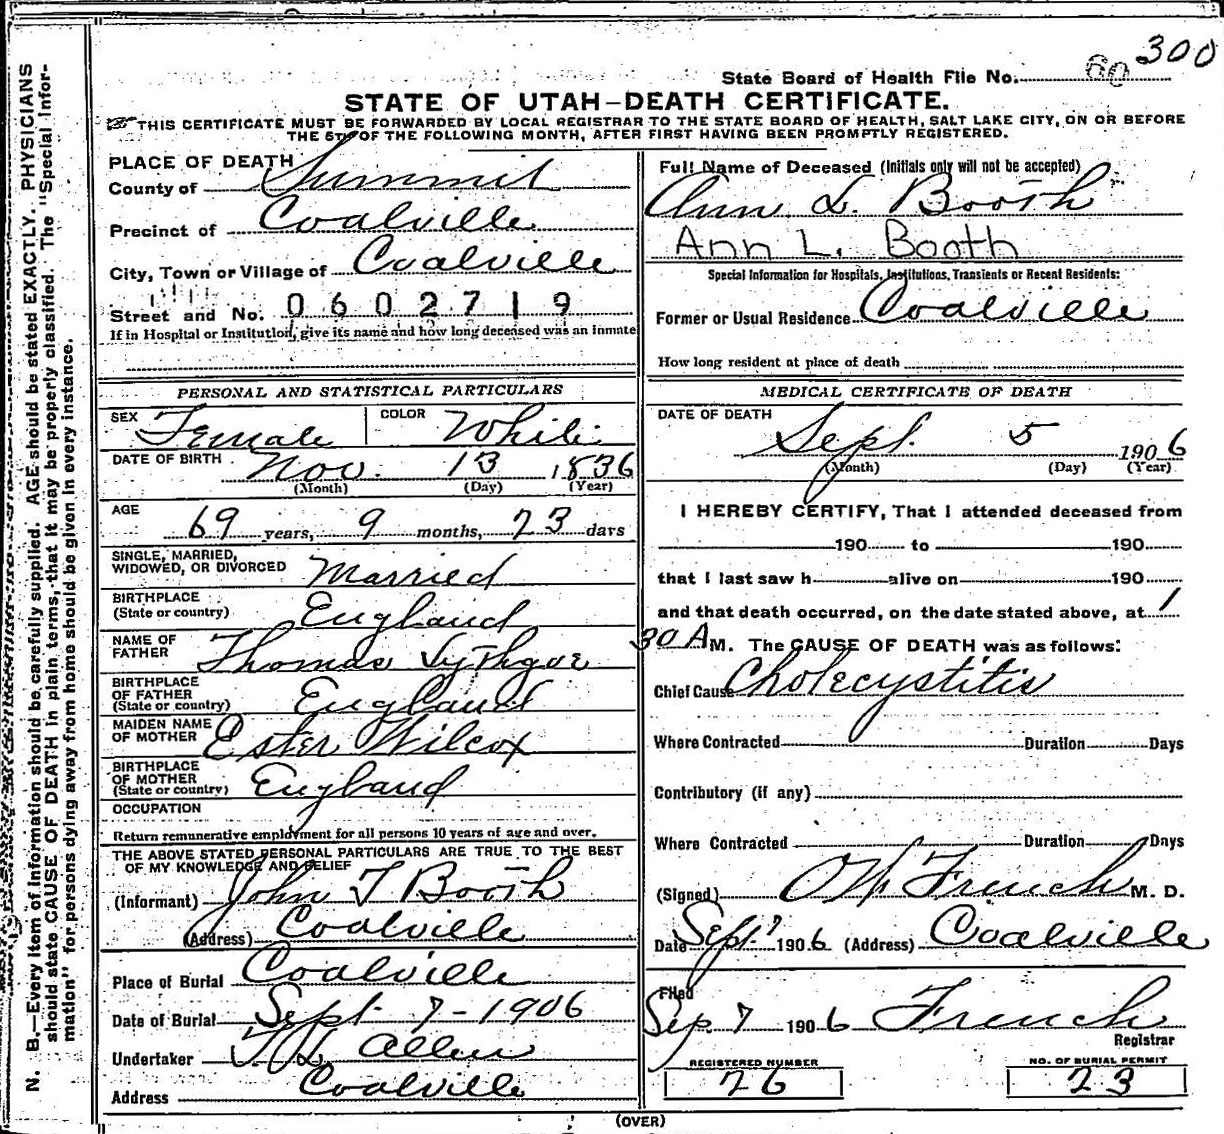 300
State Board of Health File No. 60
STATE OF UTAH—DEATH CERTIFICATE.
THIS CERTIFICATE MUST BE FORWARDED BY LOCAL REGISTRAR TO THE STATE BOARD OF HEALTH, SALT LAKE CITY, ON OR BEFORE
THE 5TH OF THE FOLLOWING MONTH, AFTER FIRST HAVING BEEN PROMPTLY REGISTERED.
N. B.—Every item of information should be carefully supplied. AGE should be stated EXACTLY. PHYSICIANS
should state CAUSE OF DEATH in plain terms, that it may be properly classified. The "Special Infor-
mation" for persons dying away from home should be given in every instance.
PLACE OF DEATH
County of Summit
Precinct of Coalville
City, Town or Village of Coalville
Street and No. 0602719
If in Hospital or Institution, give its name and how long deceased was an inmate
Full Name of Deceased (Initials only will not be accepted)
Ann L. Booth
Ann L. Booth
Special Information for Hospitals, Institutions, Transients or Recent Residents:
Former or Usual Residence Coalville
How long resident at place of death
PERSONAL AND STATISTICAL PARTICULARS
SEX Female COLOR White
DATE OF BIRTH Nov. 13 1836
(Month) (Day) (Year)
AGE 69 years, 9 months, 23 days
SINGLE, MARRIED,
WIDOWED, OR DIVORCED Married
BIRTHPLACE
(State or country) England
NAME OF
FATHER Thomas Lythgoe
BIRTHPLACE
OF FATHER
(State or country) England
MAIDEN NAME
OF MOTHER Ester Wilcox
BIRTHPLACE
OF MOTHER
(State or country) England
OCCUPATION
Return remunerative employment for all persons 10 years of age and over.
THE ABOVE STATED PERSONAL PARTICULARS ARE TRUE TO THE BEST
OF MY KNOWLEDGE AND BELIEF
(Informant) John T Booth
(Address) Coalville
Place of Burial Coalville
Date of Burial Sept 7-1906
Undertaker Allen
Address Coalville
MEDICAL CERTIFICATE OF DEATH
DATE OF DEATH
Sept. 5 1906
(Month) (Day) (Year)
I HEREBY CERTIFY, That I attended deceased from
190 to 190
that I last saw h alive on 190
and that death occurred, on the date stated above, at 1
30 A M. The CAUSE OF DEATH was as follows:
Chief Cause Cholecystitis
Where Contracted Duration Days
Contributory (if any)
Where Contracted Duration Days
(Signed) French M. D.
Date Sept 7 1906 (Address) Coalville
Filed
Sep 7 1906 French
Registrar
REGISTERED NUMBER
26
NO. OF BURIAL PERMIT
23
(OVER)